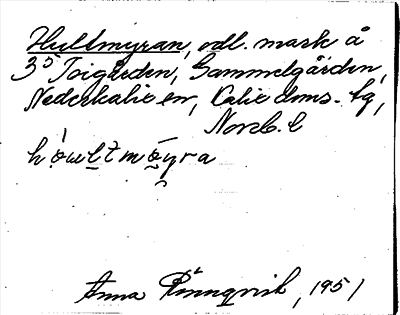 Hultmyran, odl. mark å
3⁵ Toigården, Gammelgården,
Nederkalix sn, Kalix doms. tg,
Norrb. l
Anna Rönnqvist, 1951